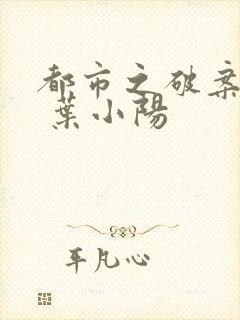 都市之破案
葉小陽
平凡心